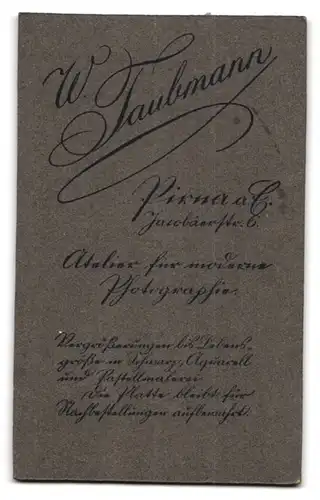 W. Taubmann
Pirna a. E.
Jacobäerstr. 6.
Atelier für moderne
Photographie.
Vergrößerungen bis Lebens-
größe in Schwarz, Aquarell
und Pastellmalerei
Die Platte bleibt für
Nachbestellungen aufbewahrt.